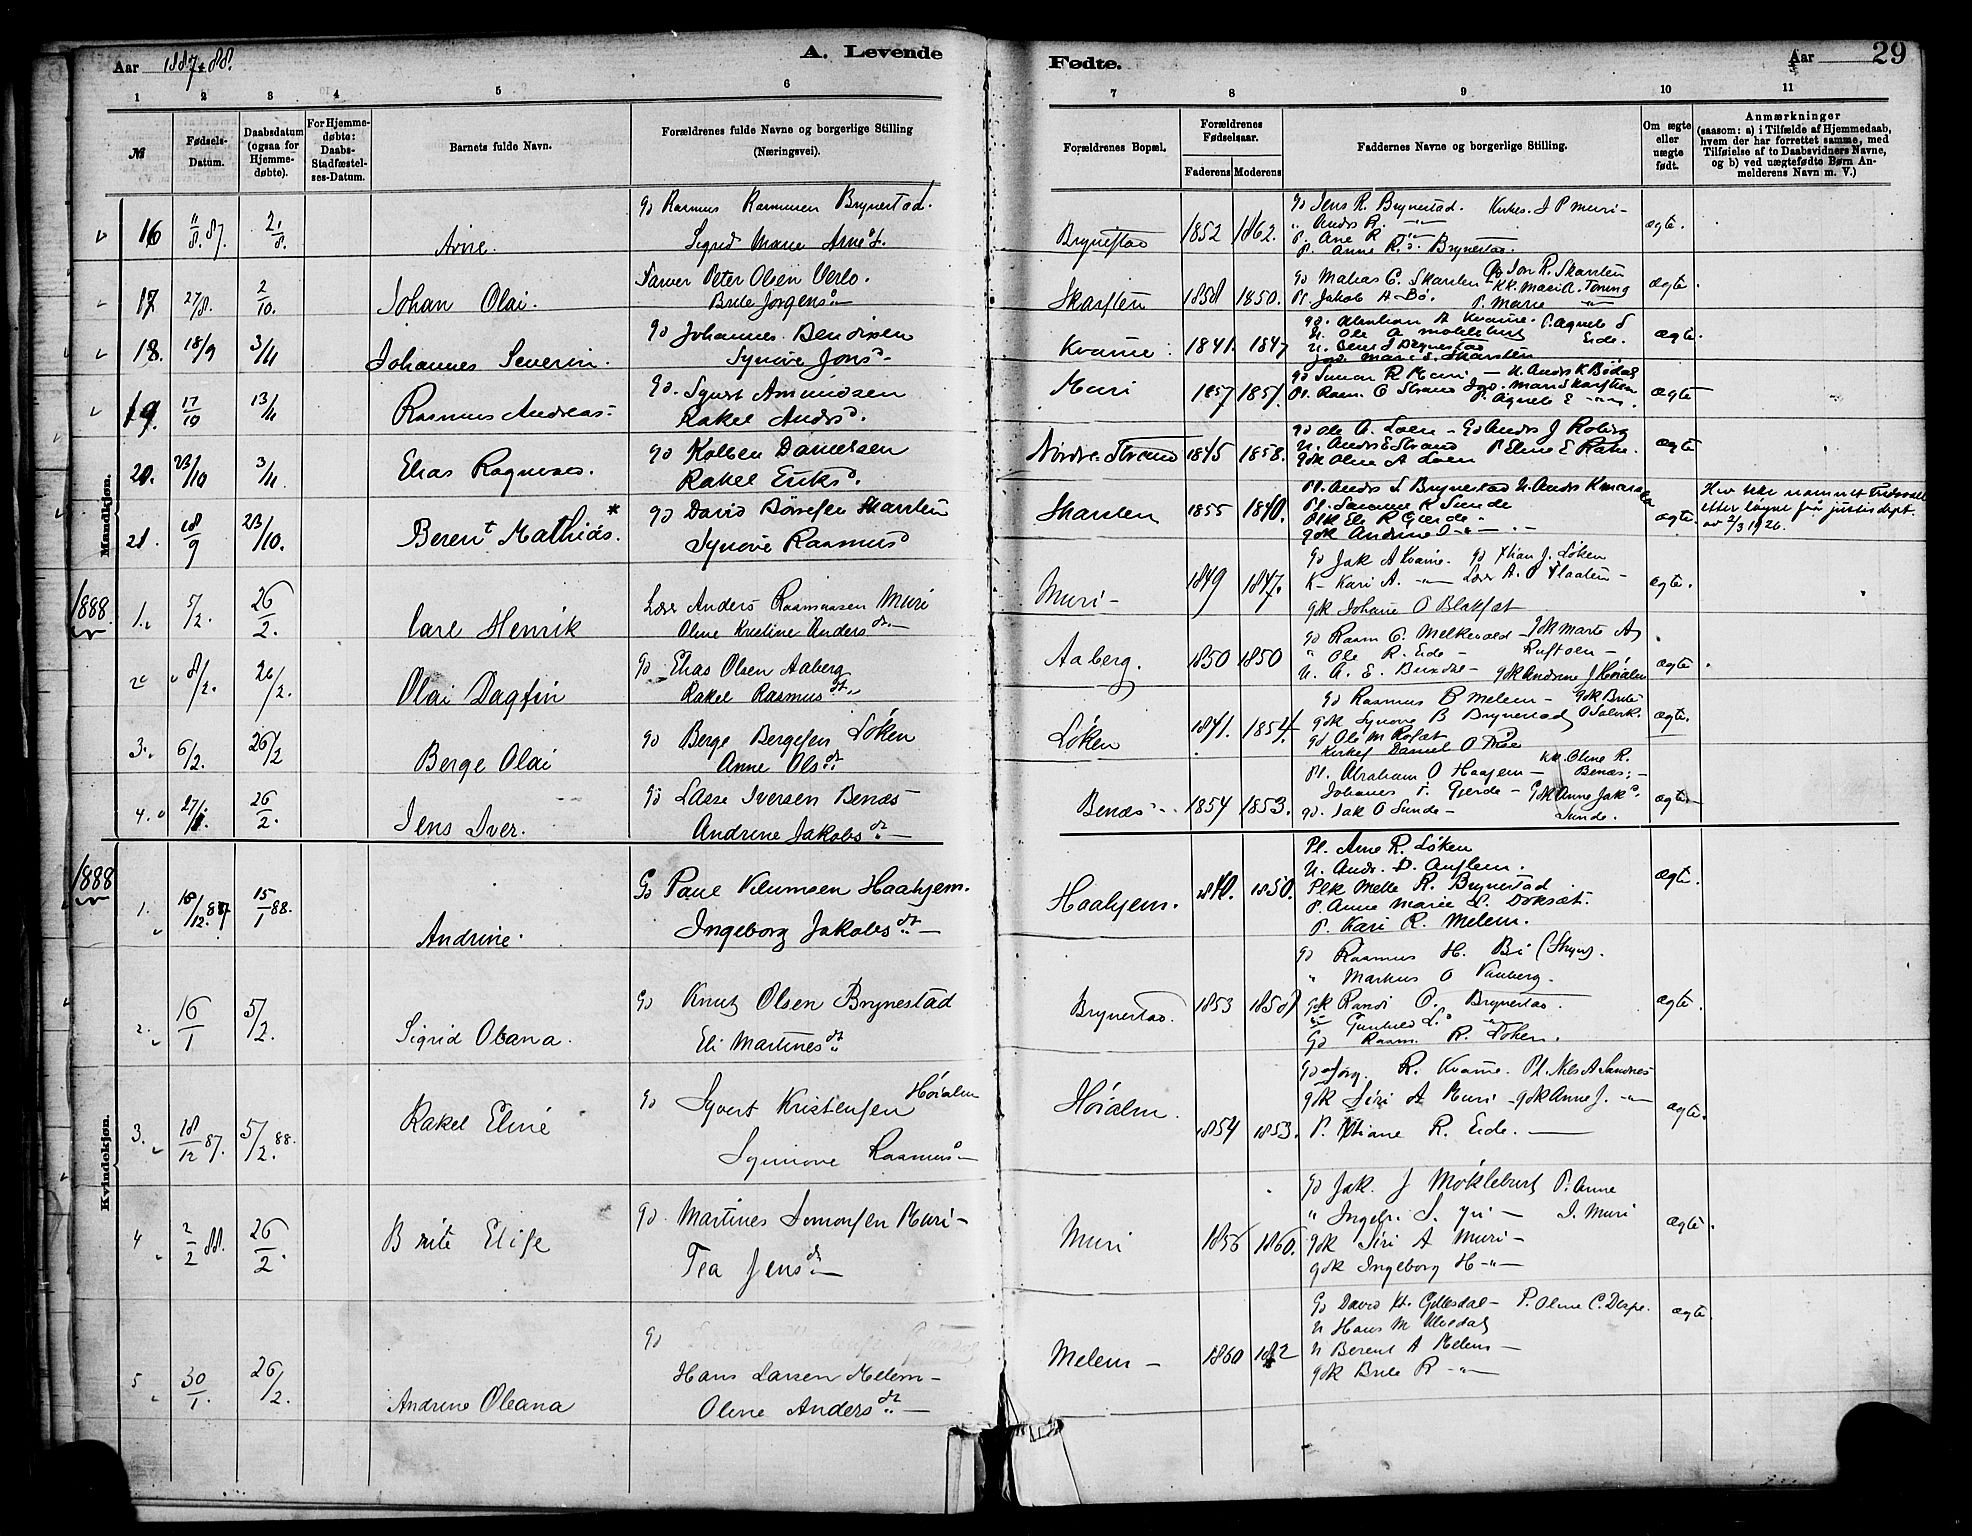 Aar 1887-88.
A. Levende
Fødte.
Aar
29
1 2 3 4 5 6
7 8 9 10 11
№
Fødsels-Datum.
Daabsdatum (ogsaa for Hjemmedøbte).
For Hjemmedøbte: Daabs-Stadfæstelses-Datum.
Barnets fulde Navn.
Forældrenes fulde Navne og borgerlige Stilling
(Næringsvei).
Forældrenes Bopæl.
Forældrenes Fødselsaar.
Faderens Moderens
Faddernes Navne og borgerlige Stilling.
Om ægte eller uægte født.
Anmærkninger
(saasom: a) i Tilfælde af Hjemmedaab, hvem der har forrettet samme, med Tilføielse af to Daabsvidners Navne, og b) ved uægtefødte Børn Anmelderens Navn m. V.)
Mandkjøn.
16 11/8.87. 21/8. Arne.
Gd Rasmus Rasmusen Brynestad.
Sigrid Marie Arnes
Brynestad 1852 1862.
Gd Jens R. Brynestad. Kirkes. J P Muri -
Anders R. -"-
P. Ane R -"-
P. Anne R. Brynestad.
ægte.
17 27/8. 2/10. Johan Olai.
Farver Peter Olsen Verlo.
Brite Jørgens
Skarsten 1858 1850.
Gd Matias C. Skarsten Gd Jon R. Skarsten
Pl. Jakob A Bø. KK. Mari A. Tenning
P. Marie -"-
ægte.
18. 18/9 3/11 Johannes Severin.
Gd Johannes Bendixen
Synøve Jons
Kvame. 1841. 1847
Gd. Abraham A Kvame. P. Agnete S Eide.
U. Ole A Mokleburst
U. Jens J Brynestad
Mari S. Skarsten
ægte.
19. 17/10 13/11 Rasmus Andreas
Gd. Syvert Amundsen
Rakel Andrs
Muri 1857 1851.
Gd Simon R Muri - U. Anders K Bødal
Pl. Rasm. O Strand Mari Skarsten
P. Agnete E -"-
ægte
20. 23/10 3/11 Elias Ragnvas.
Gd Kolben Danielsen
Rakel Eriks
Nordre Strand 1845 1858.
Gd Ole A. Loen - Gd Anders J Roberg
U. Anders E Strand P Eline E Rake.
Gdk Oline A Loen
ægte
21. 18/9 23/10. Berent Mathias.*
Gd David Børesen Skarsten
Synøve Rasmus
Skarsten 1855 1840.
Pl. Anders S. Brynestad U. Anders K
Pl. Rasmus R Sunde
Plk Eli R Gjerde
gdk Andrine O -"-
ægte.
etter løyve frå justisdept.
av 2/3 1926.
1888
1. 5/2. 26/2. Carl Henrik
Lær Anders Rasmussen Muri
Oline Kristine Anders dt.
Muri - 1849 1847.
Gd Jak A Kvame. Gd Xtian J. Løken
K- Kari A. -"- Lær A. O Flaaten -
gdk Johane O Blaksæt
ægte.
2 8/2. 26/2. Olai Dagfin
Gd Elias Olsen Aaberg
Rakel Rasmus dt.
Aaberg. 1850 1850
Gd Rasm C. Melkevold - gdk Marte A
" Ole R. Eide - Rustøen -
U. A. E. Buxdre - gdk Andrine J Høialm
ægte
3. 6/2. 26/2 Berge Olai
Gd Berge Bergesen Løken
Anne Ols dt.
Løken 1841. 1854.
Gd Rasmus B Melem - gdk Brite
gdk Synøve B Brynestad
Gd Ole M Rosæt
Kirkes Daniel O
ægte.
4. 27/1. 26/2. Jens Iver.
Gd Lasse Iversen Benæs
Andrine Jakobs dt. -
Benæs 1854 1853.
Pl. Abraham O Haahjem - KK. Oline R. Benæs -
Johanes T. Gjerde - gdk Anne Jak Sunde.
Gd. Jak O Sunde -
ægte
1888
Kvindekjøn.
1. 18/12.87 15/1 88. Andrine.
Gd Paul Villumsen Haahjem.
Ingeborg Jakobs dt. -
Haahjem. 1840. 1850.
Pl. Arne R. Løken
U. Andr. D. Auflem.
Plk Melle R. Brynestad
P. Anne Marie L. Doksæt.
P. Kari R. Melem.
ægte.
2. 16/1 5/2. Sigrid Oleana.
Gd Knut Olsen Brynestad
Eli Martines dt.
Brynestad. 1853 1858
Gd Rasmus H. Bø (Stryn).
" Markus O Vanberg.
gdk Randi O. Brynestad
Gunhild L. -"-
Gd Rasm. R. Løken.
ægte.
3. 18/12 87. 5/2. 88. Rakel Eliné
Gd Syvert Kristensen Høialm
Synnøve Rasmus
Høialm. 1854 1853.
Gd Jørg. R. Kvame. Pl. Nils A Sandnes
gdk Siri A Muri - gdk Anne J. -"-
P. Xtiane R. Eide.
ægte.
4 2/2 88. 26/2. Brite Elise
Gd. Martines Simonsen Muri -
Tea Jens dt. -
Muri 1856 1860.
Gd Jak. J Mokleburst P. Anne
" Ingebr. S. Yri - J. Muri
gdk Siri A Muri -
gdk Ingeborg H -"-
ægte.
5 30/1. 26/2. Andrine Oleana
Gd
Hans Larsen Melem -
Oline Anders dt. -
Melem - 1860 1862
Gd David Kr. Gyttesdal - P. Oline C. Drape.
U Hans M Ulvedal
U Berent A Melem -
gdk Brite R -"-
ægte.